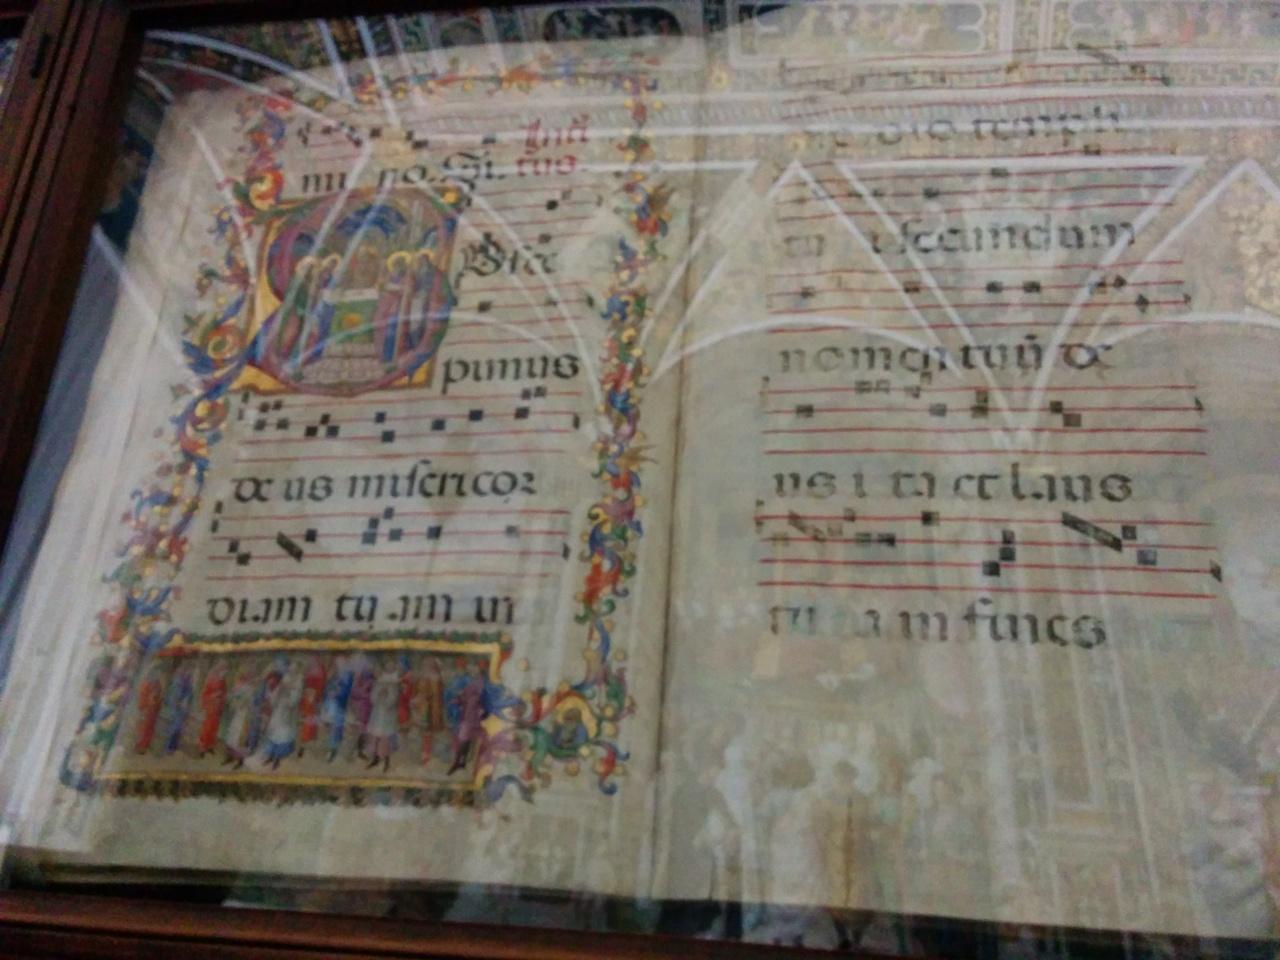 mi no. Si. Inti
tus
Usce
pimus
de us misericor
diam tu am in
me dio templi
tu i secundum
nomen tuū de
us i ta et laus
tu a in fines